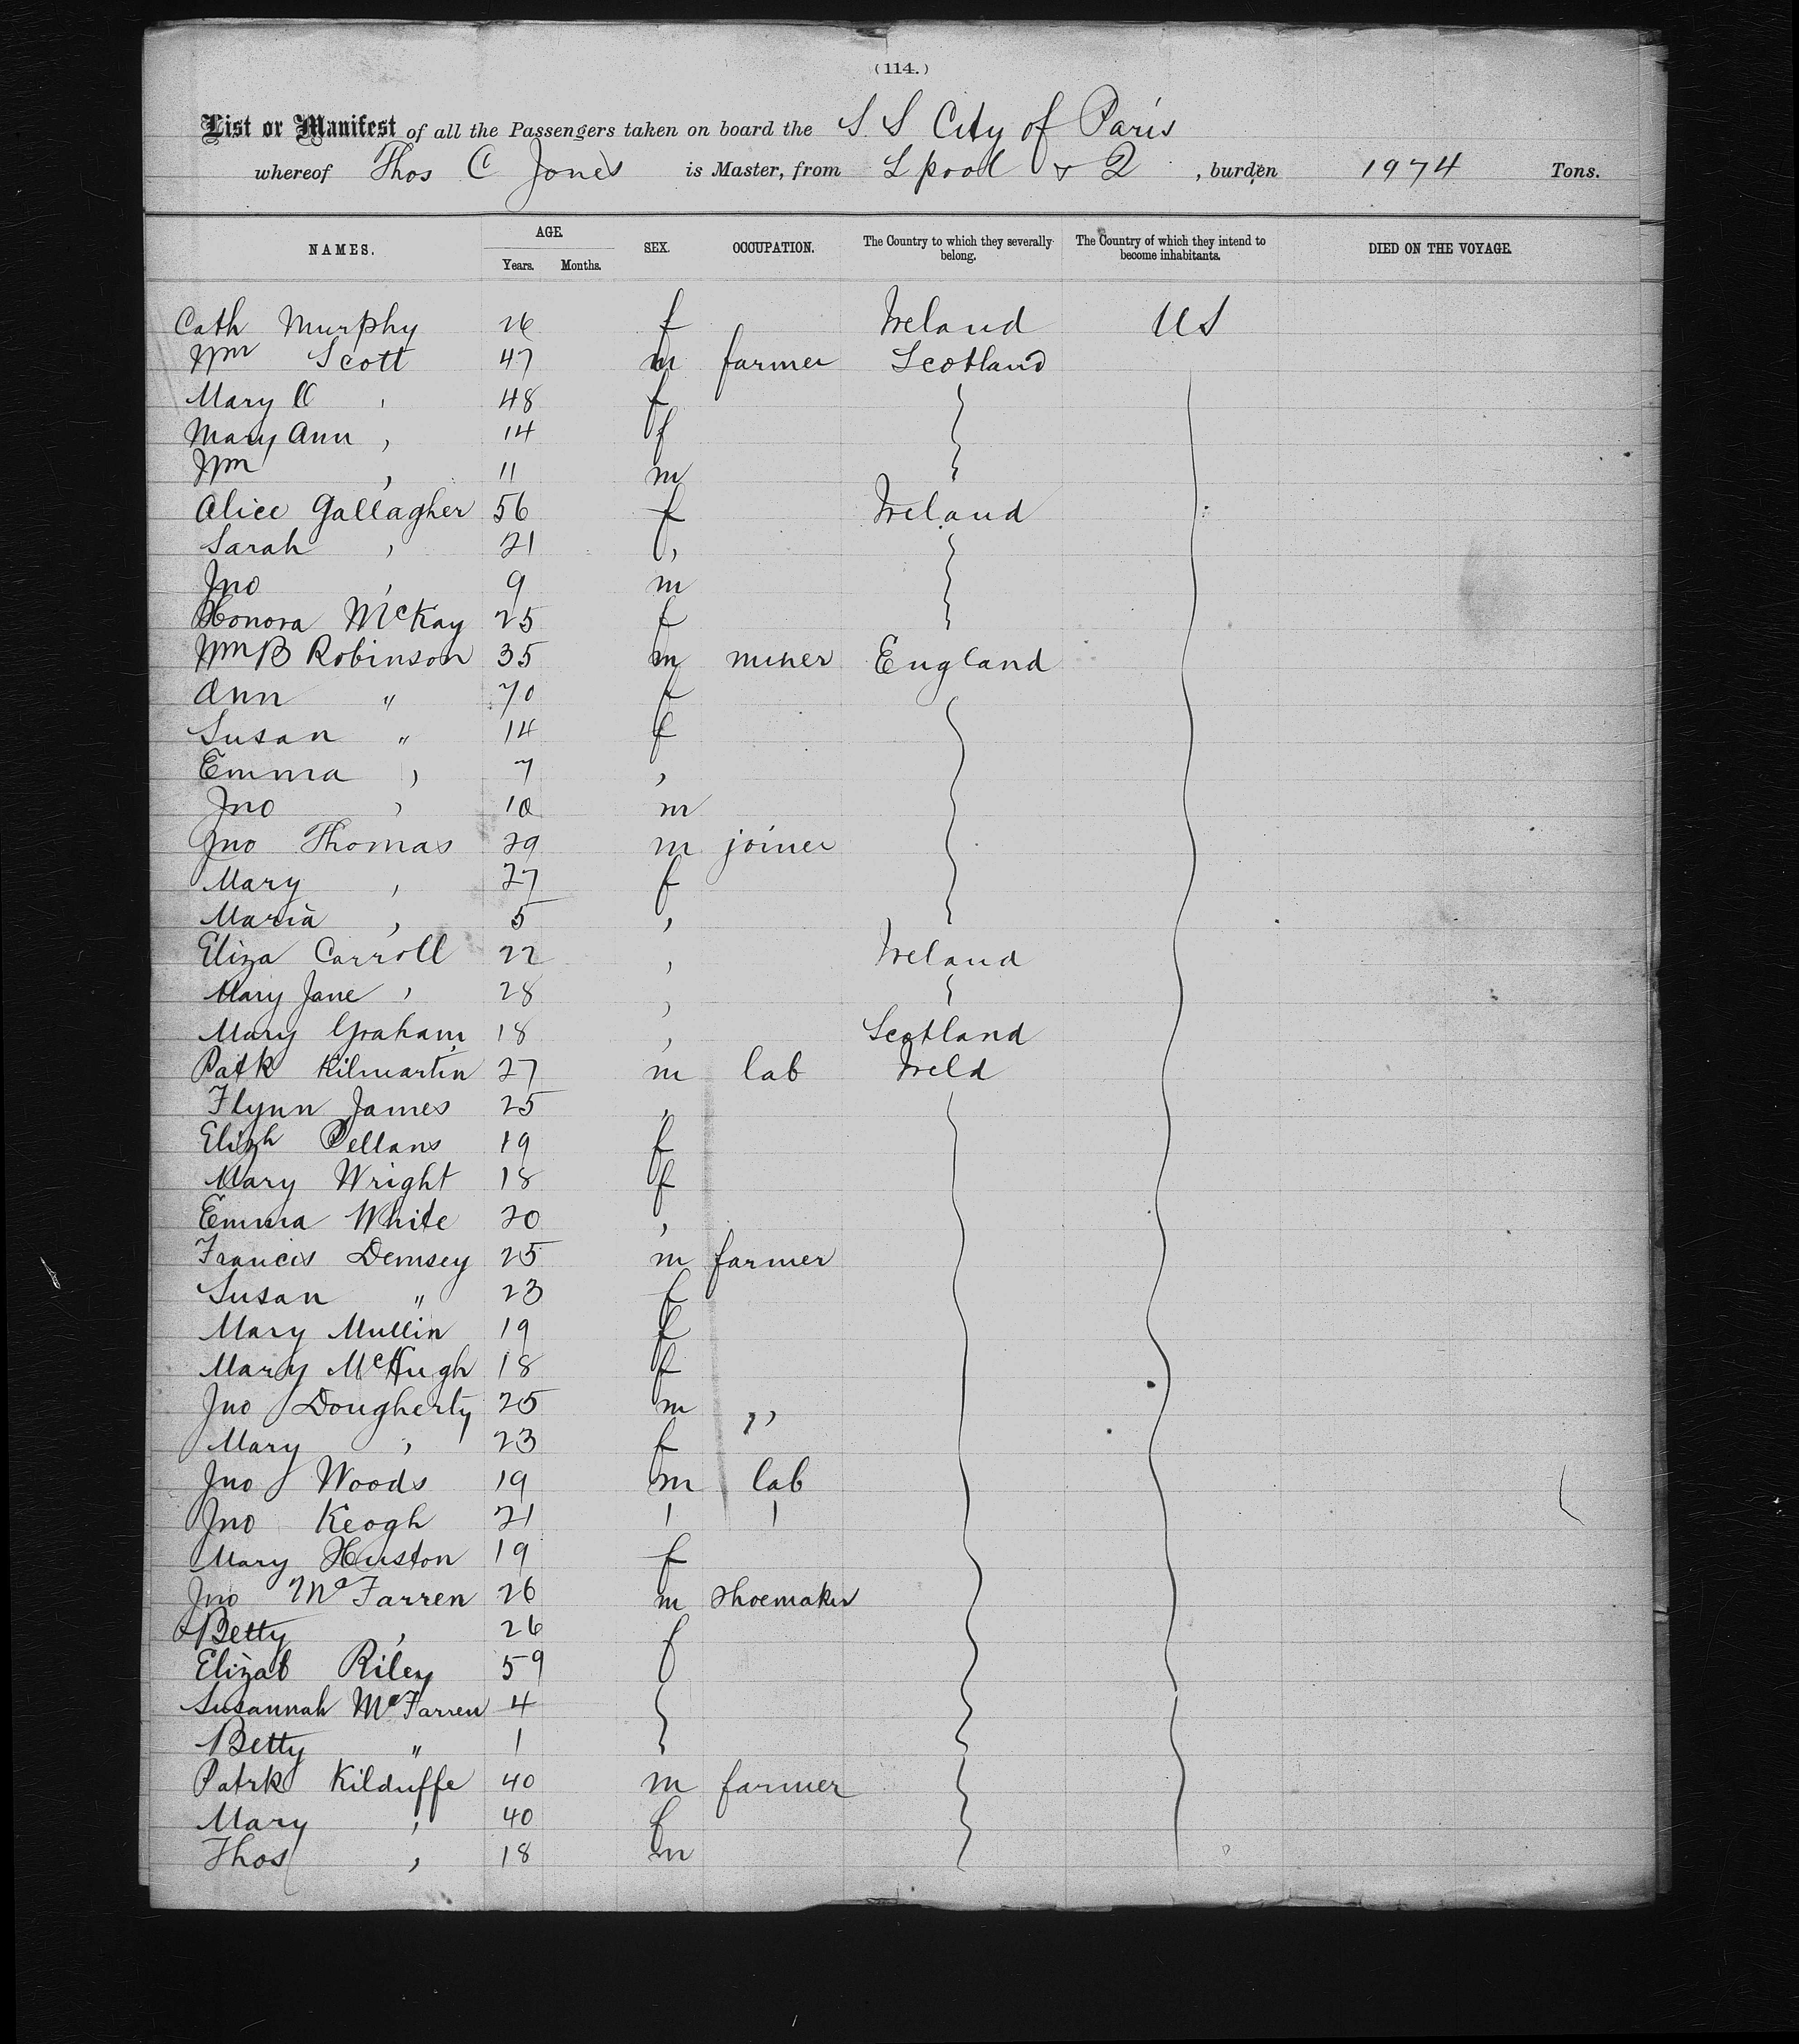 (114.)
List or Manifest of all the Passengers taken on board the S S City of Paris
whereof Thos C Jones is Master, from Lpool & Q , burden 1974 Tons.
NAMES. AGE. Years. Months. SEX. OCCUPATION. The Country to which they severally belong. The Country of which they intend to become inhabitants. DIED ON THE VOYAGE.
Cath Murphy 26 f Ireland US
Wm Scott 47 m farmer Scotland
Mary C , 48 f
Mary Ann , 14 f
Wm , 11 m
Alice Gallagher 56 f Ireland
Sarah , 21 ,
Jno , 9 m
Honora McKay 25 f
Wm B Robinson 35 m miner England
Ann " 70 f
Susan " 14 f
Emma , 7 ,
Jno , 10 m
Jno Thomas 29 m joiner
Mary , 27 f
Maria , 5 ,
Eliza Carroll 22 , Ireland
Mary Jane , 28 ,
Mary Graham 18 , Scotland
Patk Kilmartin 27 m lab Ireld
Flynn James 25 ,
Elizh Pellans 19 f
Mary Wright 18 f
Emma White 20 ,
Francis Demsey 25 m farmer
Susan " 23 f
Mary Mullin 19 f
Mary McHugh 18 f
Jno Dougherty 25 m ,,
Mary , 23 f
Jno Woods 19 m lab
Jno Keogh 21 ' '
Mary Huston 19 f
Jno McFarren 26 m Shoemaker
Betty , 26 f
Elizab Riley 59 f
Susannah McFarren 4
Betty " 1
Patrk Kilduffe 40 m farmer
Mary , 40 f
Thos , 18 m